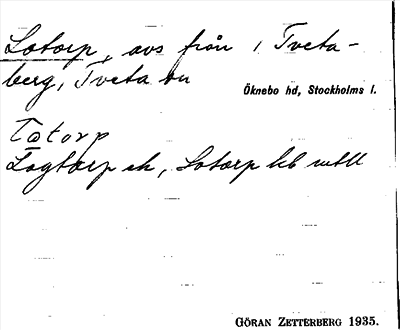 Lotorp, avs från 1 Tveta-
berg, Tveta sn
Öknebo hd, Stockholms l.
Tɷtorp
Logtorp ek, Lotorp lcb
GÖRAN ZETTERBERG 1935.